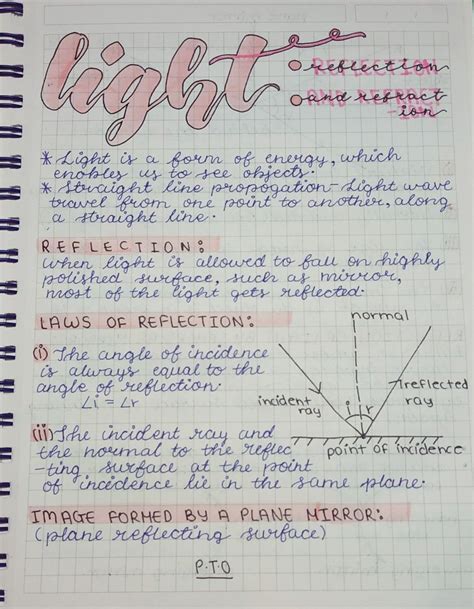 light
reflection
REFLECTION
and refract
-ion
* Light is a form of energy, which
enables us to see objects.
* Straight line propogation- Light wave
travel from one point to another, along
a straight line.
REFLECTION:
when light is allowed to fall on highly
polished surface, such as mirror,
most of the light gets reflected.
LAWS OF REFLECTION:
(i) The angle of incidence
is always equal to the
angle of reflection.
∠i = ∠r
normal
incident
ray
i r
reflected
ray
point of incidence
(ii) The incident ray and
the normal to the reflec
-ting surface at the point
of incedence lie in the same plane.
IMAGE FORMED BY A PLANE MIRROR:
(plane reflecting surface)
P.T.O